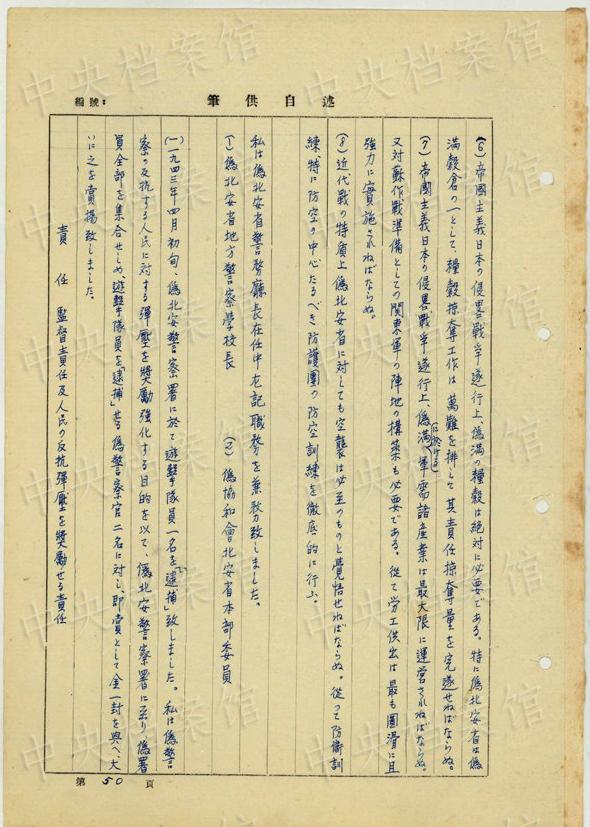 述自供筆
編號：
(6) 帝國主義日本の侵畧戰爭遂行上、偽満の糧穀は絶対に必要である。特に偽北安省は偽
満穀倉の一として、糧穀掠奪工作は萬難を排して其責任掠奪量を完遂せねばならぬ。
(7) 帝國主義日本の侵畧戰爭遂行上、偽満に於ける軍需諸産業は最大限に運営されねばならぬ。
又対蘇作戰準備としての関東軍の陣地の構築も必要である。従て労工供出は最も圓滑に且
強力に実施されねばならぬ。
(8) 近代戰の特質上偽北安省に対しても空襲は必至のものと覚悟せねばならぬ。従って防衛訓
練特に防空の中心たるべき防護團の防空訓練を徹底的に行ふ。
私は偽北安省警務廳長在任中左記職務を兼務致しました。
(1) 偽北安省地方警察學校長 (2) 偽協和會北安省本部委員
(一) 一九四三年四月初旬、偽北安警察署に於て遊撃隊員一名を「逮捕」致しました。私は偽警
察の反抗する人民に対する弾壓を奬勵強化する目的を以て、偽北安警察署に至り、偽署
員全部を集合せしめ、遊撃隊員を「逮捕」せる偽警察官二名に対し、即賞として金一封を與へ大
いに之を賞揚致しました。
責任 監督責任及人民の反抗弾壓を奬勵せる責任
第 50 頁
中央档案馆